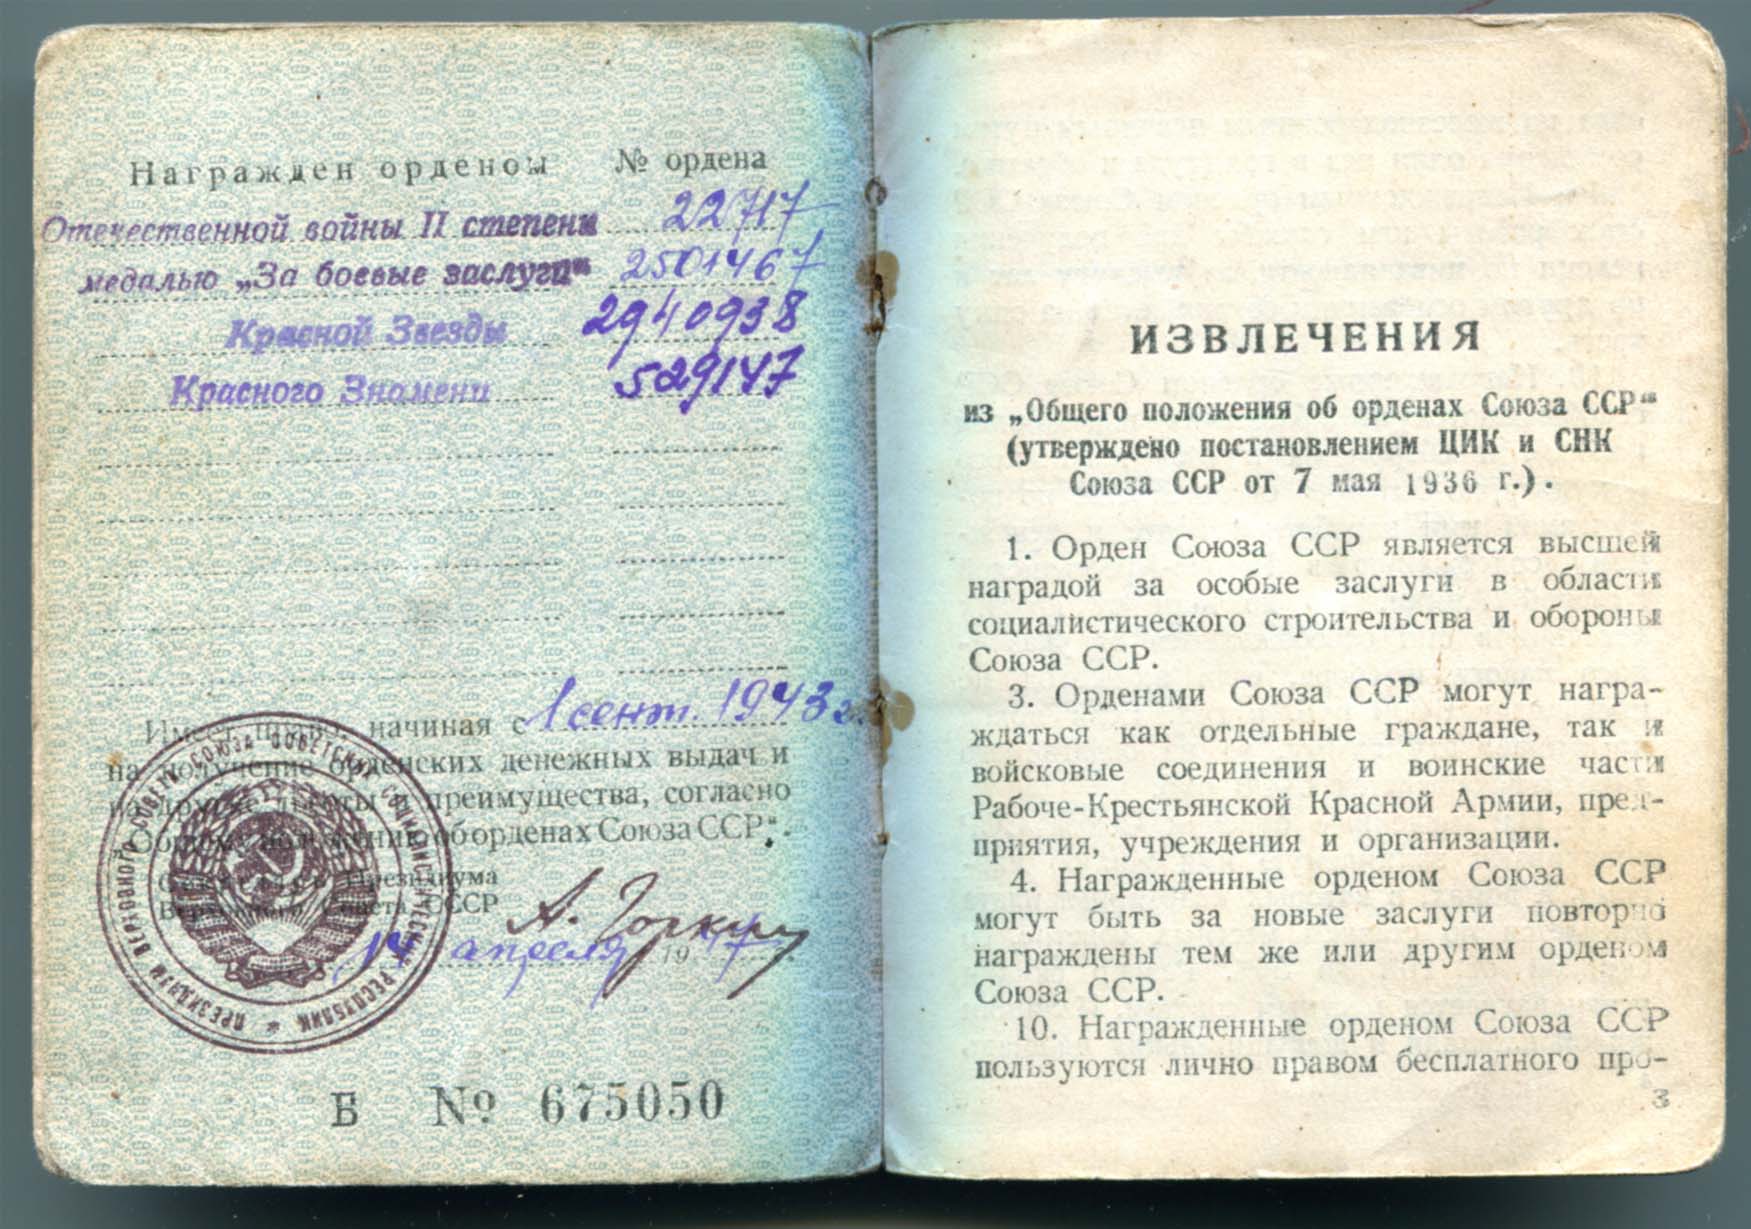 Награжден орденом № ордена
Отечественной войны II степени 22717
медалью „За боевые заслуги“ 2501467
Красной Звезды 2940938
Красного Знамени 529147
Имеет право, начиная с 1 сент. 1943 г.
на получение орденских денежных выдач и
на другие льготы и преимущества, согласно
„Общему положению об орденах Союза ССР“.
Секретарь Президиума
Верховного Совета СССР
А. Горкин
14 апреля 1947
ПРЕЗИДИУМ ВЕРХОВНОГО СОВЕТА СОЮЗА СОВЕТСКИХ СОЦИАЛИСТИЧЕСКИХ РЕСПУБЛИК *
Б № 675050
ИЗВЛЕЧЕНИЯ
из „Общего положения об орденах Союза ССР“
(утверждено постановлением ЦИК и СНК
Союза ССР от 7 мая 1936 г.).
1. Орден Союза ССР является высшей
наградой за особые заслуги в области
социалистического строительства и обороны
Союза ССР.
3. Орденами Союза ССР могут награ-
ждаться как отдельные граждане, так и
войсковые соединения и воинские части
Рабоче-Крестьянской Красной Армии, пред-
приятия, учреждения и организации.
4. Награжденные орденом Союза ССР
могут быть за новые заслуги повторно
награждены тем же или другим орденом
Союза ССР.
10. Награжденные орденом Союза ССР
пользуются лично правом бесплатного про-
3